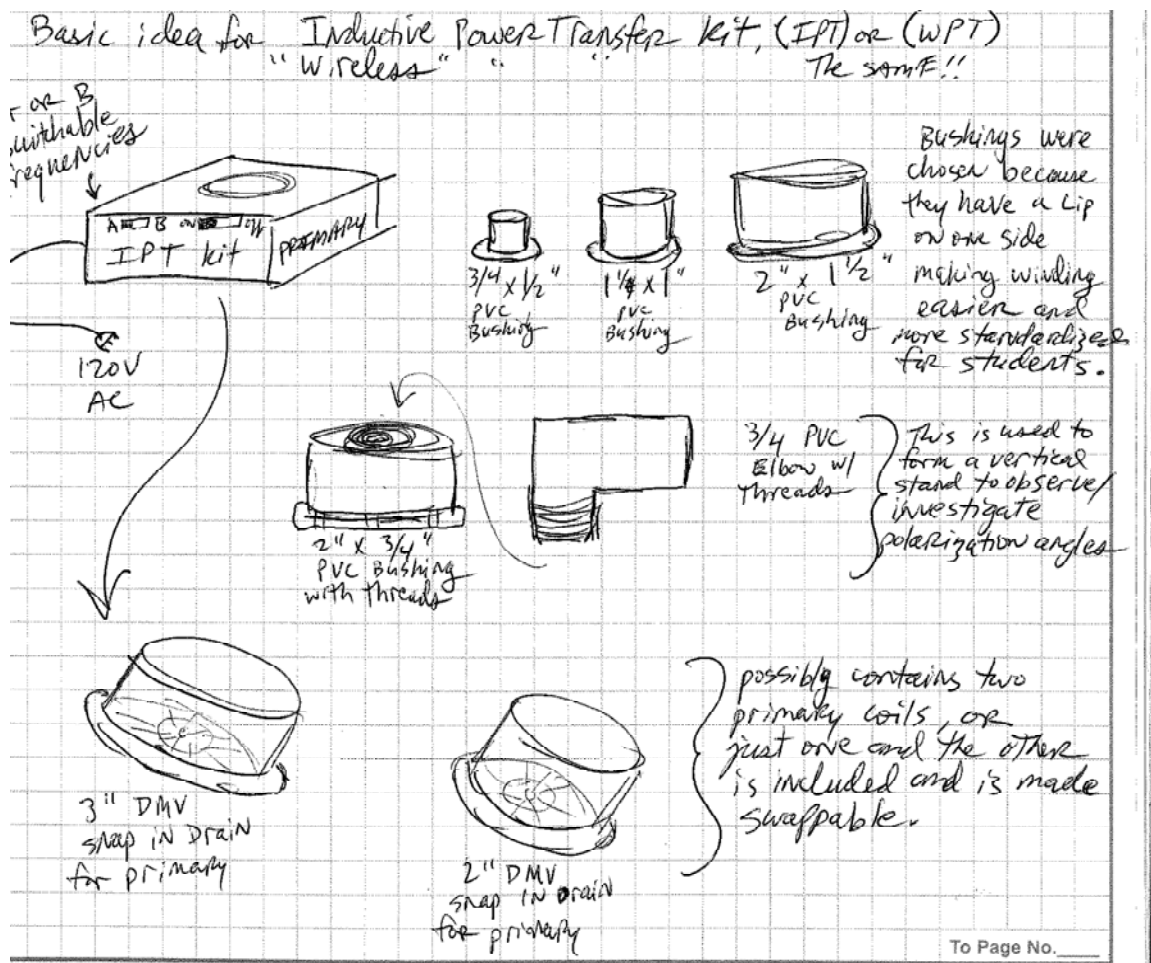 Basic idea for Inductive Power Transfer kit, (IPT) or (WPT)
"Wireless" " "
The SAME!!
or B
frequencies
A B ON OFF
IPT kit
PRIMARY
120V
AC
3/4 x 1/2"
PVC
Bushing
1 1/4 x 1"
PVC
Bushing
2" x 1 1/2"
PVC
Bushing
Bushings were
chosen because
they have a Lip
on one side
making winding
easier and
more standardized
for students.
2" x 3/4"
PVC Bushing
with threads
3/4 PVC
Elbow w/
threads
This is used to
form a vertical
stand to observe/
investigate
polarization angles
3" DMV
snap IN Drain
for primary
2" DMV
snap IN Drain
for primary
possibly contains two
primary coils, or
just one and the other
is included and is made
swappable.
To Page No.